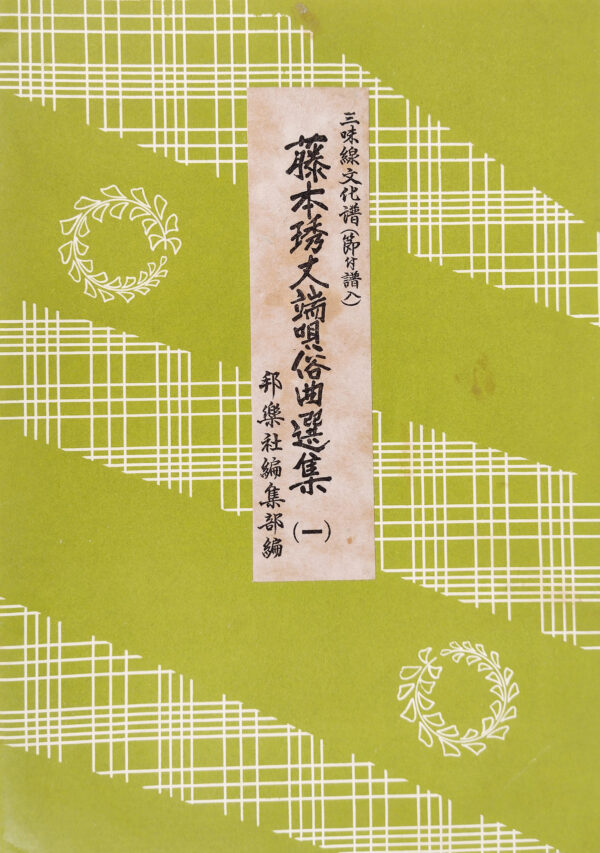 三味線文化譜(節付譜入)
藤本琇丈端唄俗曲選集(一)
邦樂社編集部編